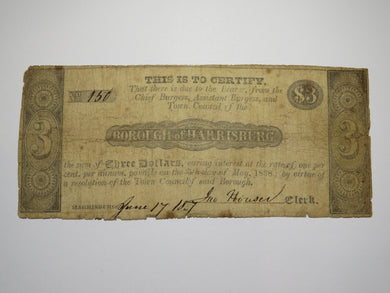 THIS IS TO CERTIFY,
No. 150 That there is due to the Bearer, from the
Chief Burgess, Assistant Burgess, and $3
Town Council of the
3 BOROUGH of HARRISBURG 3
the sum of Three Dollars, bearing interest at the rate of one per
cent. per annum, payable on the day of May, 1838; by virtue of
a resolution of the Town Council of said Borough.
HARRISBURG, June 17 1837 Clerk.